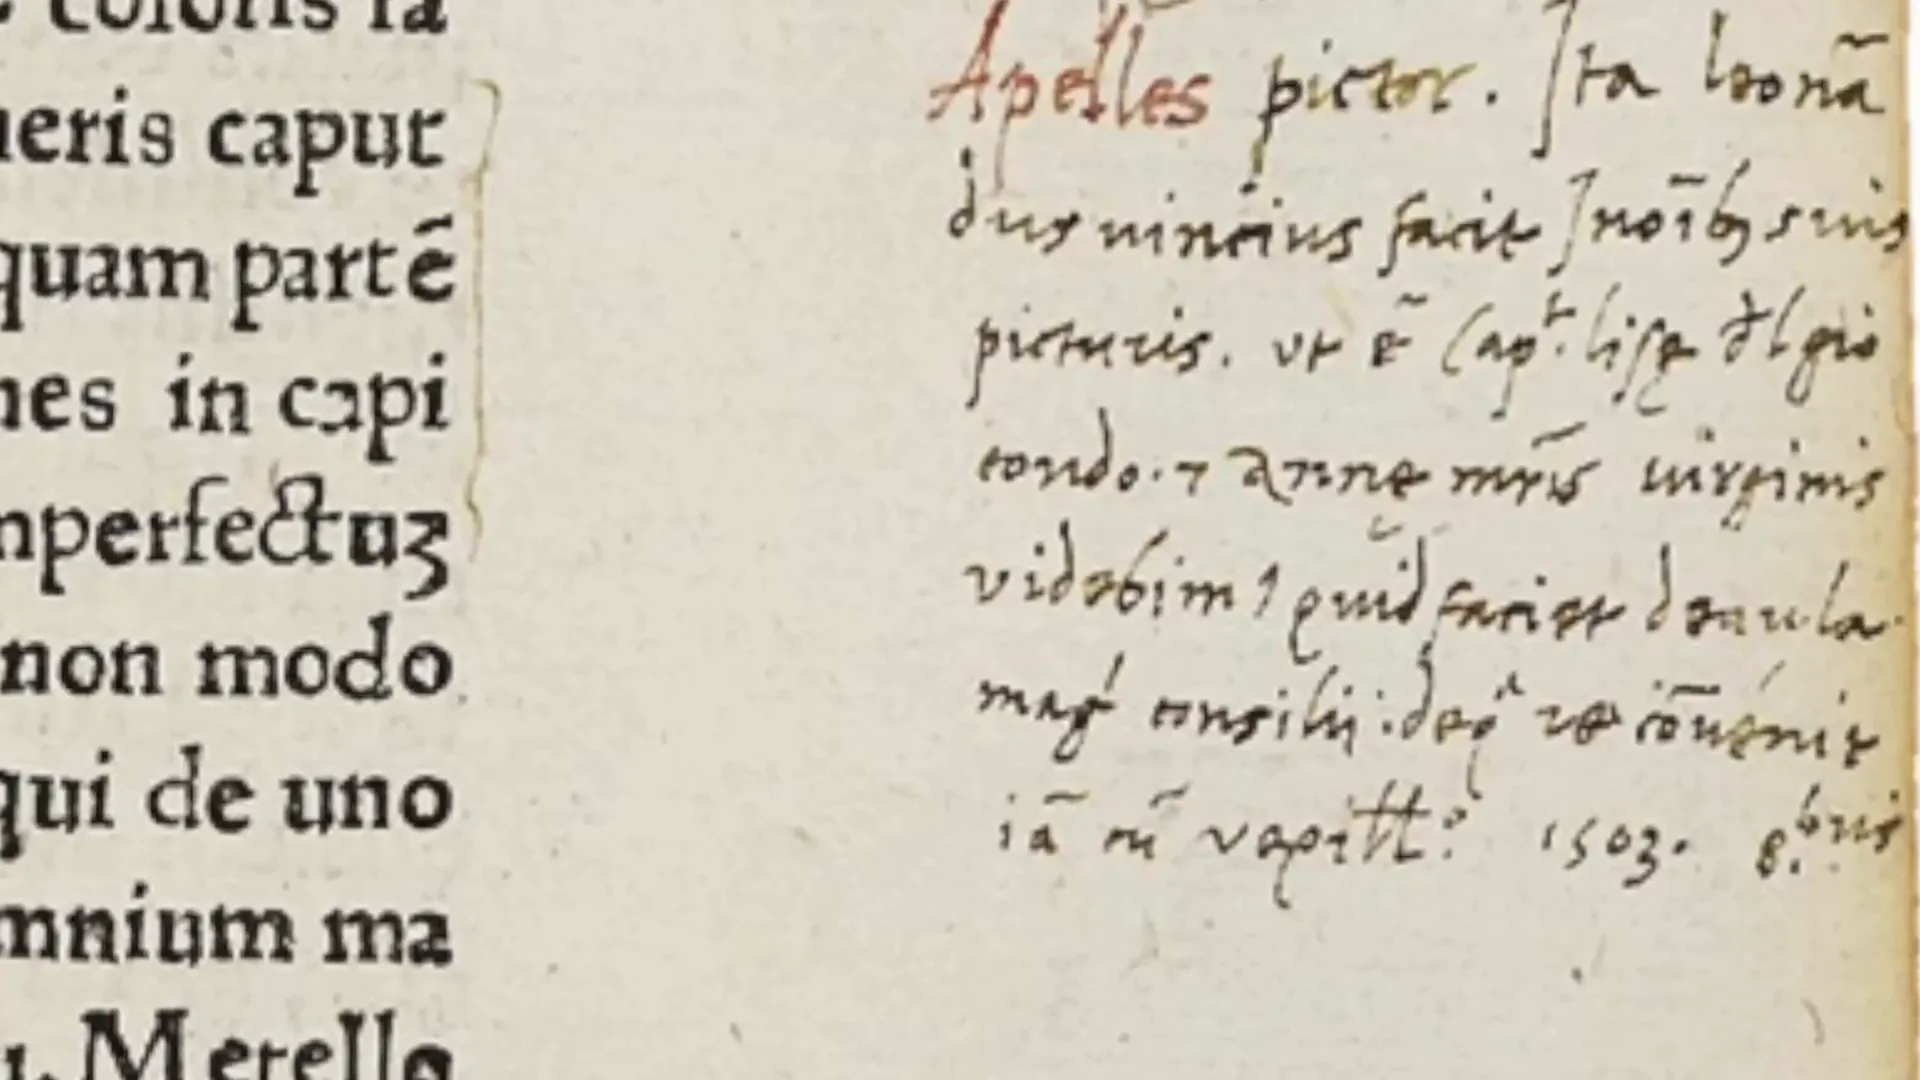 coloris ra
ueris caput
quam partē
nes in capi
mperfectuʒ
non modo
qui de uno
mnium ma
Metello
Apelles pictor. Ita leonar
dus uincius facit in oı̄bꝫ suis
picturis. vt ē Capᵗ. liſę del gio
condo. ⁊ anne mr̄is uirginis
videbim⁹ quid faciet de aula
mag¹ consilij. de qᵃ re cōuenit
iā cū vexill.º 1503. 8.bris